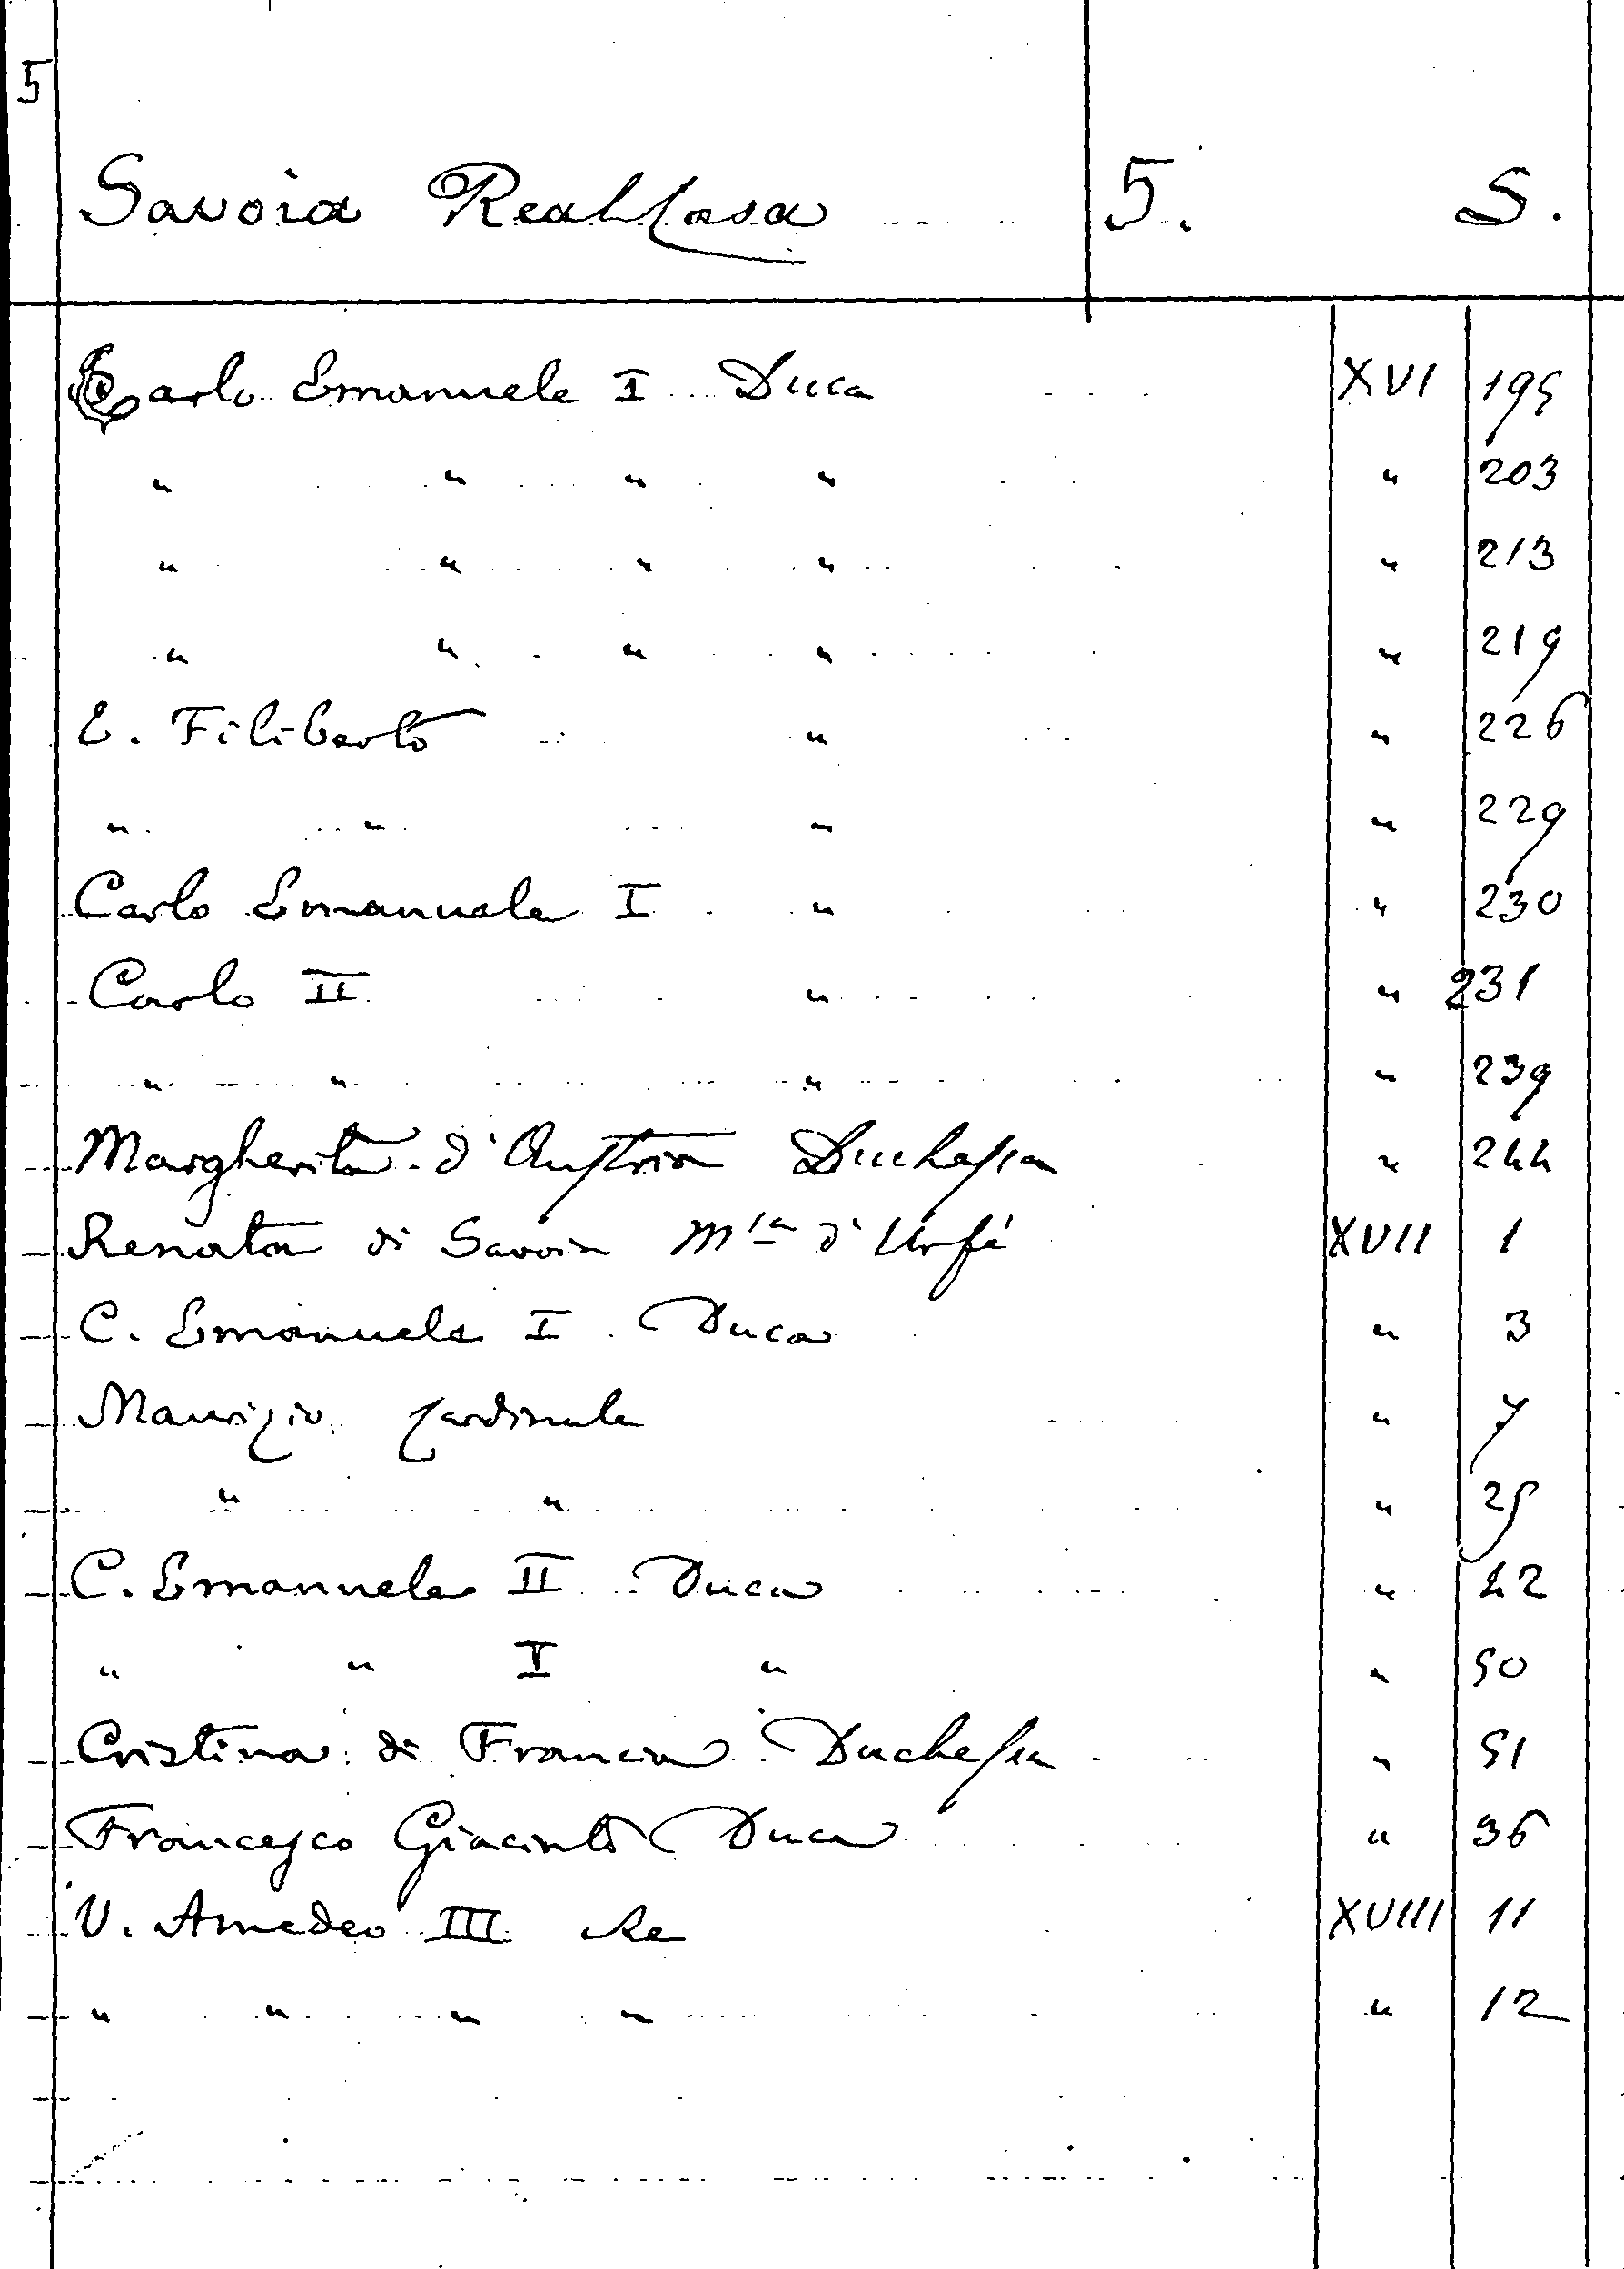 5
Savoia Real Casa 5. S.
Carlo Emanuele I Duca XVI 195
" " " " " 203
" " " " " 213
" " " " " 219
E. Filiberto " " 226
" " " " 229
Carlo Emanuele I " " 230
Carlo II " " 231
" " " " 239
Margherita d'Austria Duchessa " 244
Renata di Savoia M.sa d'Urfé XVII 1
C. Emanuele I Duca " 3
Maurizio Cardinale " 7
" " " 25
C. Emanuele II Duca " 42
" " I " " 50
Cristina di Francia Duchessa " 51
Francesco Giacinto Duca " 36
V. Amedeo III Re XVIII 11
" " " " " 12